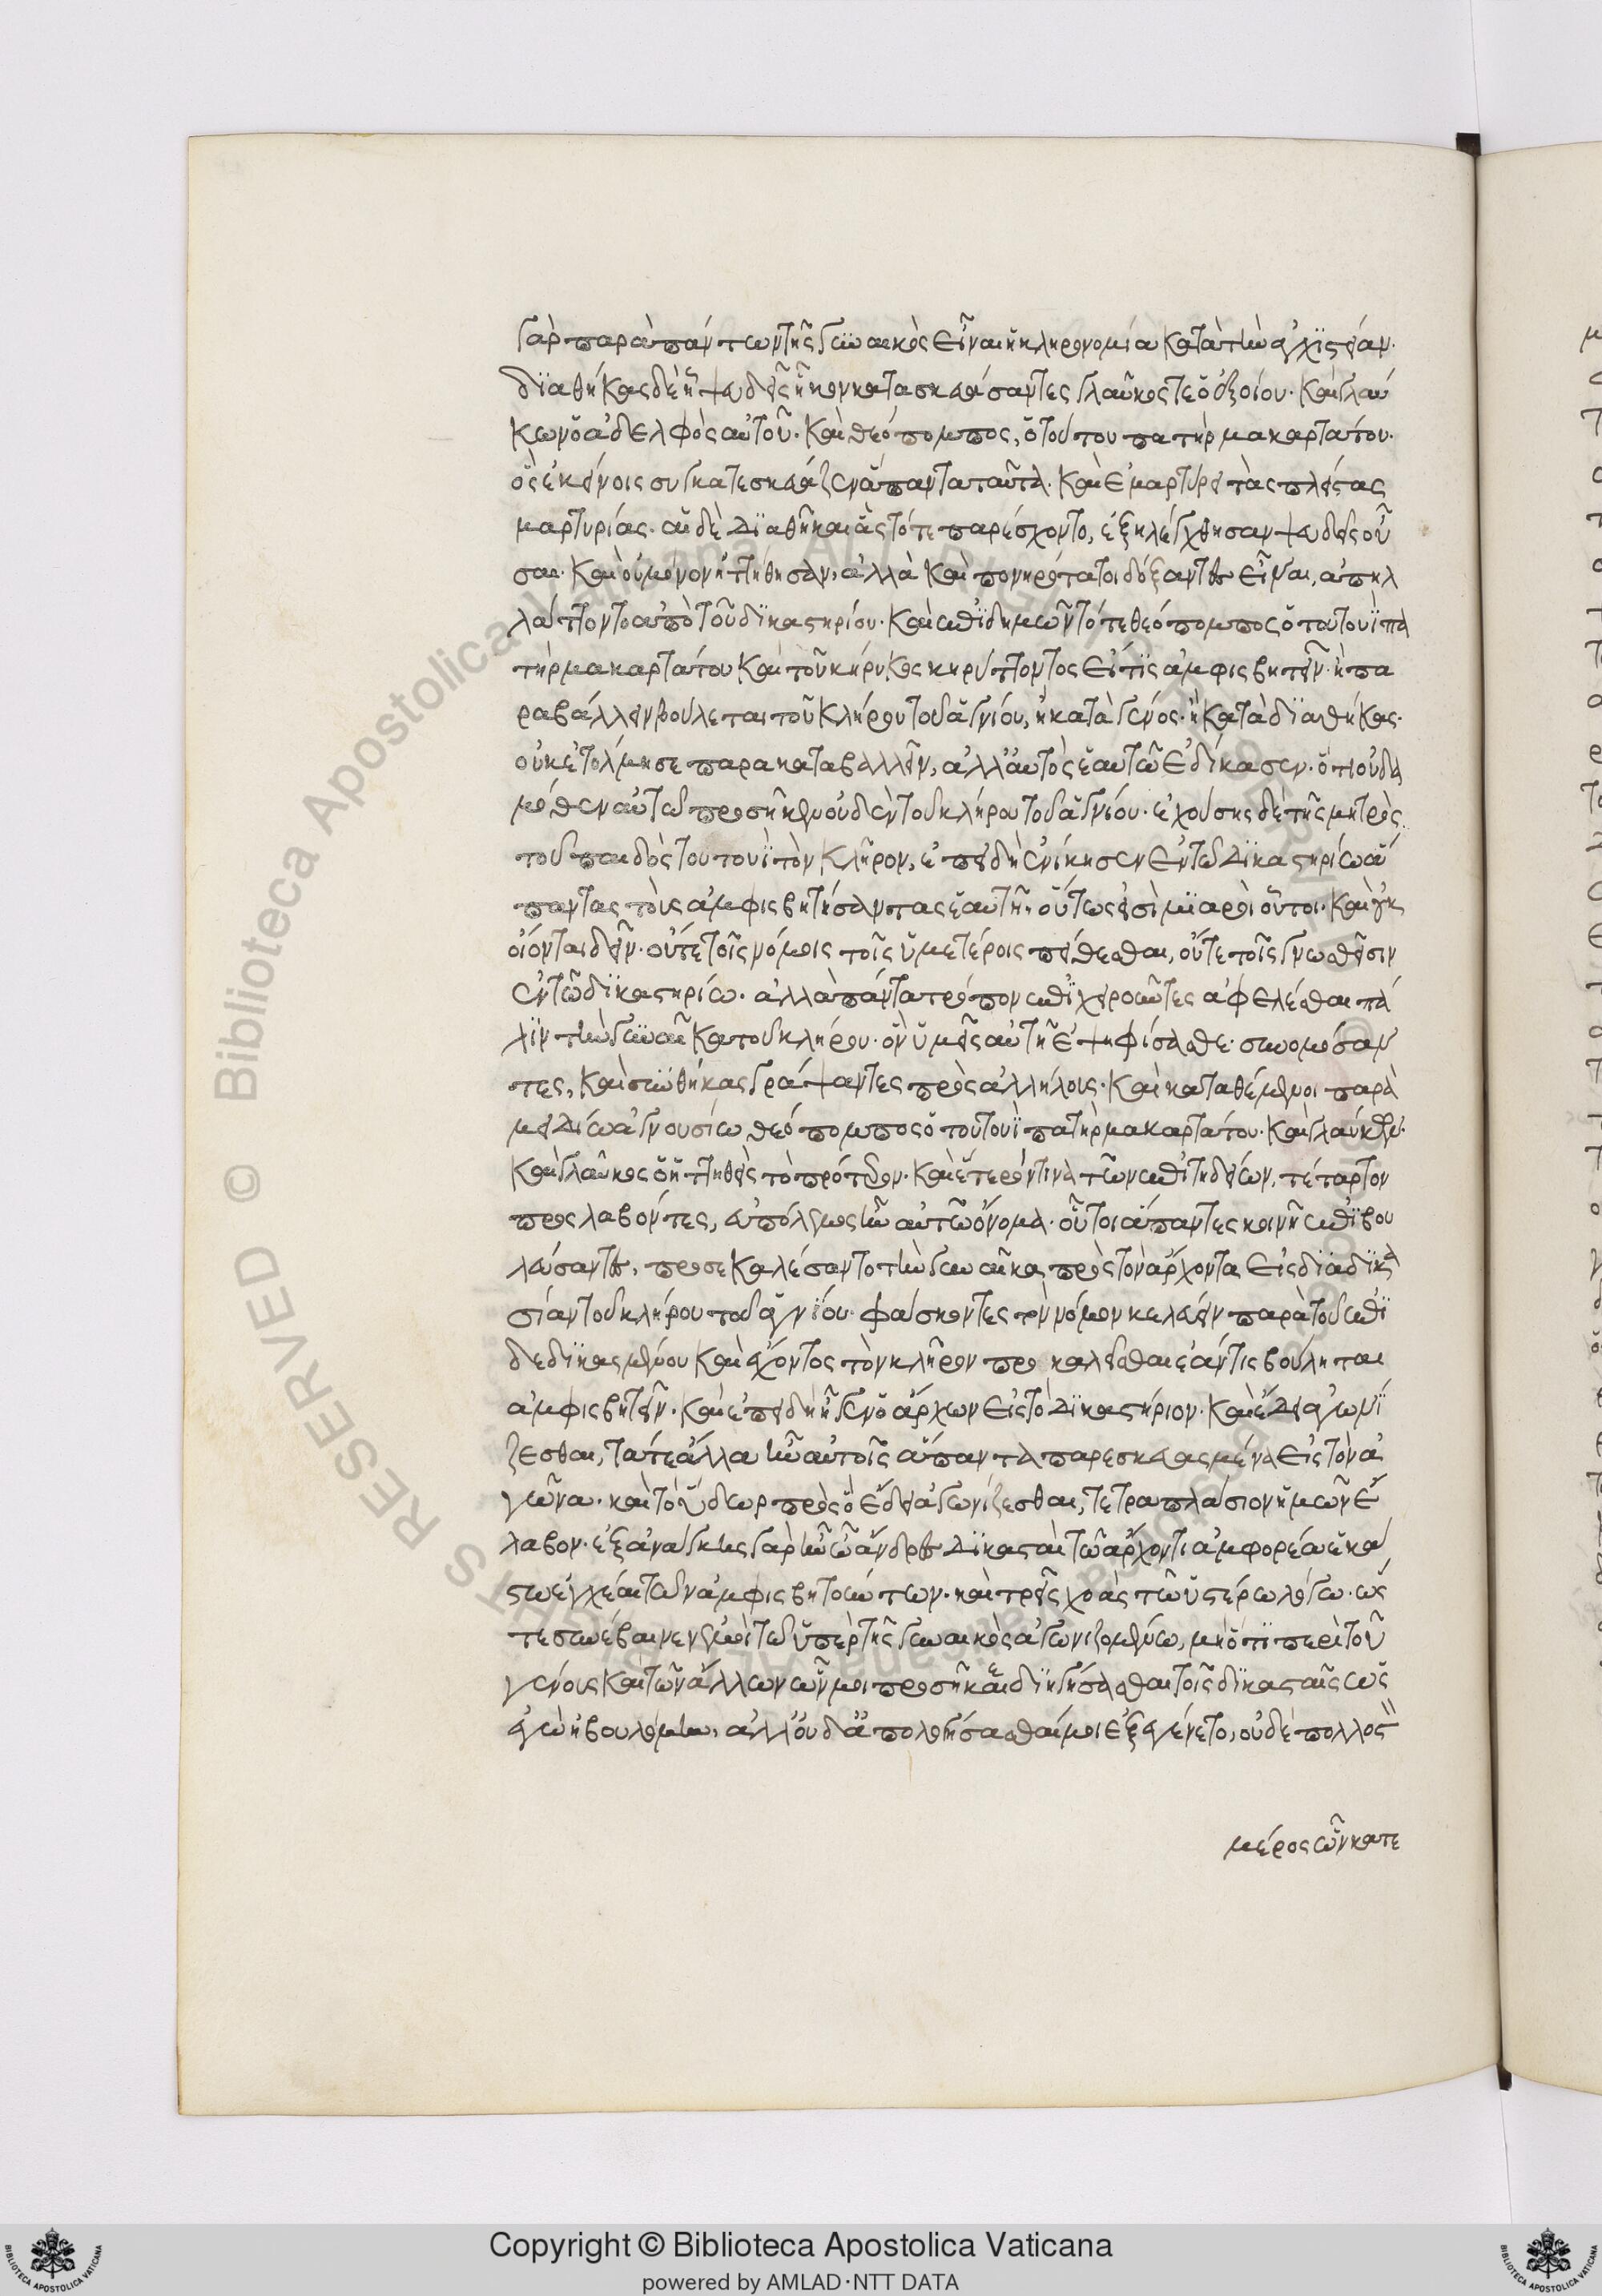 γὰρ παρὰ πάντων τῆς γυναικὸς εἶναι ἡ κληρονομία κατὰ τὴν ἀγχιστείαν·
διαθήκας δὲ ἧ ψευδεῖς ἧκον κατασκευάσαντες γλαῦκος τε ὁ ὀξοίου· καὶ γλαύ
κων ὁ ἀδελφὸς αὐτοῦ· καὶ θεόπομπος, ὁ τούτου πατὴρ μακαρτάτου·
ὃς ἐκείνοις συγκατεσκεύαζεν ἅπαντα ταῦτα· καὶ ἐμαρτύρει τὰς πλείστας
μαρτυρίας· αἱ δὲ διαθῆκαι ἃς τότε παρέσχοντο, ἐξηλέγχθησαν ψευδεῖς οὖ
σαι· καὶ οὐ μόνον ἡττήθησαν, ἀλλὰ καὶ πονηρότατοι δόξαντες εἶναι, ἀπηλ
λάττοντο ἀπὸ τοῦ δικαστηρίου· καὶ ἐπιδημῶν τότε θεόπομπος ὁ τουτουῒ πα
τὴρ μακαρτάτου καὶ τοῦ κήρυκος κηρύττοντος εἴ τις ἀμφισβητεῖν· ἢ πα
ραβάλλειν βούλεται τοῦ κλήρου τοῦ ἁγνίου, ἢ κατὰ γένος· ἢ κατὰ διαθήκας·
οὐκ ἐτόλμησε παρακαταβαλλεῖν, ἀλλ' αὐτὸς ἑαυτῶ ἐδίκασεν· ὅτι οὐδα
μόθεν αὐτῶ προσῆκεν οὐδὲν τοῦ κλήρου τοῦ ἁγνίου· ἐχούσης δὲ τῆς μητρὸς
τοῦ παιδὸς τουτουῒ τὸν κλῆρον, ἐπειδὴ ἐνίκησεν ἐν τῶ δικαστηρίω ἅ
παντας τοὺς ἀμφισβητήσαντας ἑαυτῆ· οὕτως εἰσὶ μιαροὶ οὗτοι· καὶ οὐκ
οἴονται δεῖν· οὔτε τοῖς νόμοις τοῖς ὑμετέροις πείθεσθαι, οὔτε τοῖς γνωσθεῖσιν
ἐν τῶ δικαστηρίω· ἀλλὰ πάντα τρόπον ἐπιχειροῦντες ἀφελέσθαι πά
λιν τὴν γυναῖκα τοῦ κλήρου· ὃν ὑμεῖς αὐτῆ ἐψηφίσασθε· συνομόσαν
τες, καὶ συνθήκας γράψαντες πρὸς ἀλλήλους· καὶ καταθέμενοι παρὰ
μειδίω ἁγνουσίω θεόπομπος ὁ τουτουῒ πατὴρ μακαρτάτου· καὶ γλαύκων·
καὶ γλαῦκος ὁ ἡττηθεὶς τὸ πρότερον· καὶ ἕτερόν τινα τῶν ἐπιτηδείων, τέταρτον
προσλαβόντες, εὐπόλεμος ἦν αὐτῶ ὄνομα· οὗτοι ἅπαντες κοινῆ ἐπιβου
λεύσαντες, προσεκαλέσαντο τὴν γυναῖκα πρὸς τὸν ἄρχοντα εἰς διαδικα
σίαν τοῦ κλήρου τοῦ ἁγνίου· φάσκοντες τὸν νόμον κελεύειν παρὰ τοῦ ἐπι
δεδικασμένου καὶ ἔχοντος τὸν κλῆρον προκαλεῖσθαι ἐάν τις βούληται
ἀμφισβητεῖν· καὶ ἐπειδὴ ἦγεν ὁ ἄρχων εἰς τὸ δικαστήριον· καὶ ἔδει ἀγωνί
ζεσθαι, τά τε ἄλλα ἦν αὐτοῖς ἅπαντα παρεσκευασμένα εἰς τὸν ἀ
γῶνα· καὶ τὸ ὕδωρ πρὸς ὃ ἔδει ἀγωνίζεσθαι, τετραπλάσιον ἡμῶν ἔ
λαβον· ἐξ ἀνάγκης γὰρ ἦν ὦ ἄνδρες δικασταὶ τῶ ἄρχοντι ἀμφορέα ἑκά
στω ἐγχέαι τῶν ἀμφισβητούντων· καὶ τρεῖς χοὰς τῶ ὑστέρω λόγω· ὥσ
τε συνέβαινεν ἐμοὶ τῶ ὑπὲρ τῆς γυναικὸς ἀγωνιζομένω, μὴ ὅτι περὶ τοῦ
γένους καὶ τῶν ἄλλων ὧν μοι προσῆκεν διηγήσασθαι τοῖς δικασταῖς ὡς
ἐγὼ ἠβουλόμην, ἀλλ' οὐδ' ἀπολογήσασθαί μοι ἐξεγένετο, οὐδὲ πολλοσ
μέρος ὧν κατε